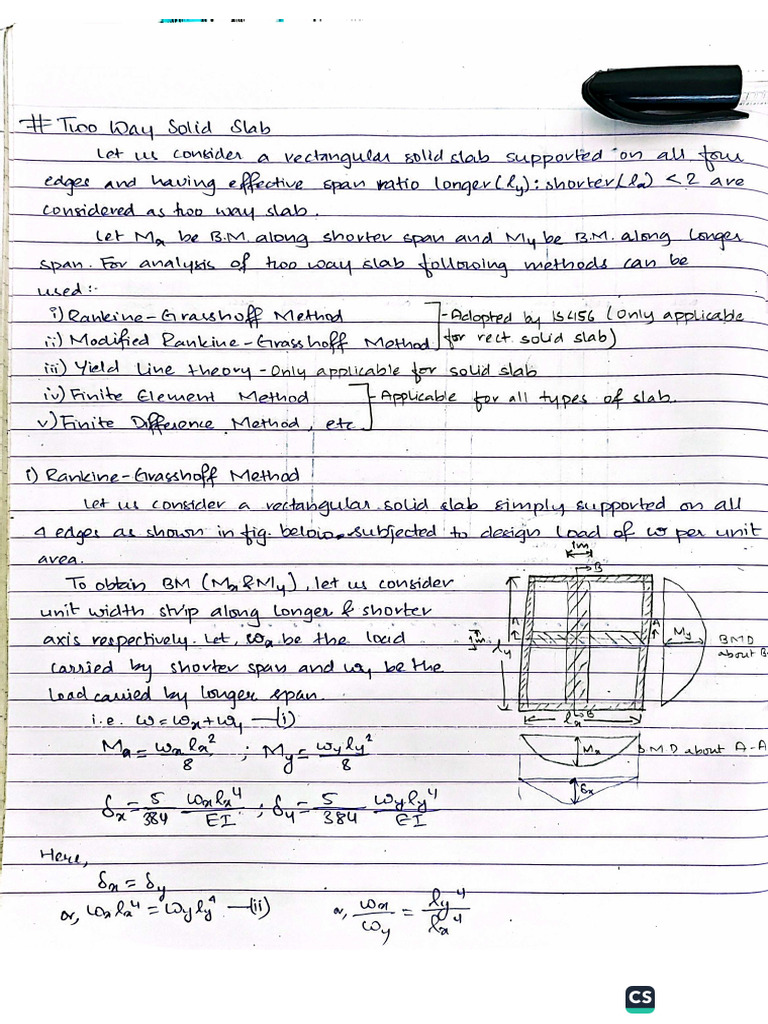 # Two Way Solid Slab
Let us consider a rectangular solid slab supported on all four
edges and having effective span ratio longer(ly): shorter(lx) < 2 are
considered as two way slab.
Let Mx be B.M. along shorter span and My be B.M. along Longer
span. For analysis of two way slab following methods can be
used:-
i) Rankine-Grasshoff Method
ii) Modified Rankine-Grasshoff Method
- Adopted by IS456 (Only applicable
for rect. solid slab)
iii) Yield Line theory - Only applicable for solid slab
iv) Finite Element Method
v) Finite Difference Method, etc.
- Applicable for all types of slab.
i) Rankine-Grasshoff Method
Let us consider a rectangular solid slab simply supported on all
4 edges as shown in fig. below, subjected to design load of w per unit
area.
To obtain BM (Mx & My), let us consider
unit width strip along longer & shorter
axis respectively. Let, wx be the load
carried by shorter span and wy be the
load carried by longer span.
i.e. w = wx + wy —(i)
Mx = wx lx²/8 ; My = wy ly²/8
δx = 5/384 wx lx⁴/EI ; δy = 5/384 wy ly⁴/EI
Here,
δx = δy
or, wx lx⁴ = wy ly⁴ —(ii)
or, wx/wy = ly⁴/lx⁴
1m
B
A
A
1m
ly
My
BMD
about B-
B
lx
Mx
B.M.D about A-A
δx
CS